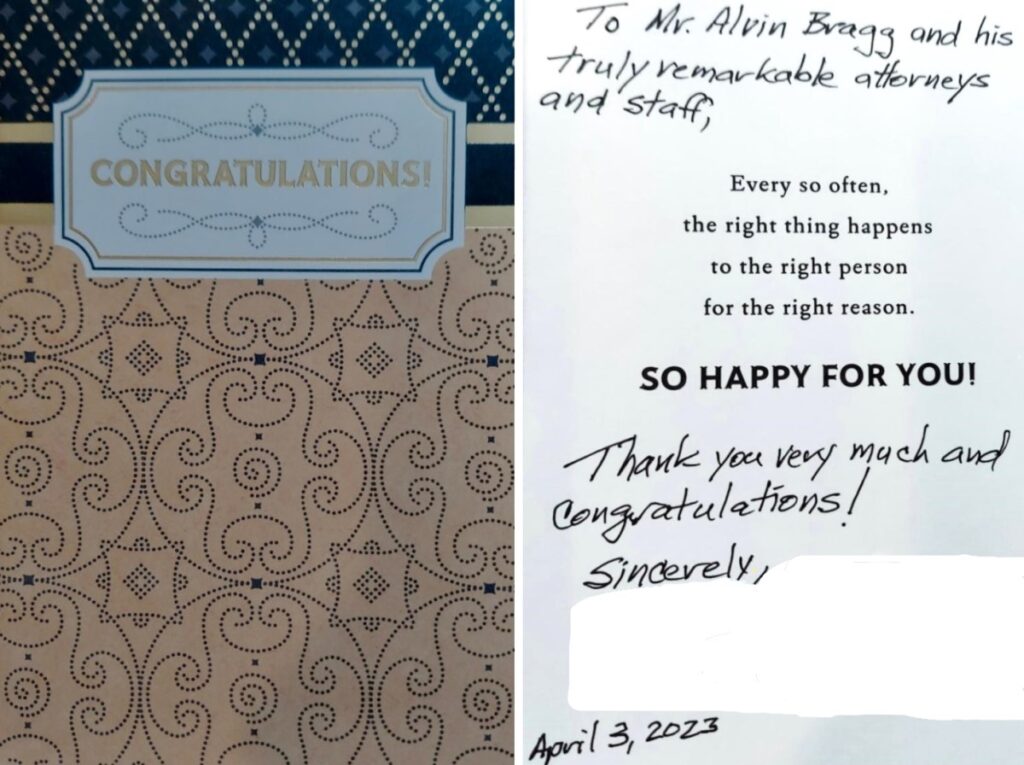 CONGRATULATIONS!
To Mr. Alvin Bragg and his
truly remarkable attorneys
and staff,
Every so often,
the right thing happens
to the right person
for the right reason.
SO HAPPY FOR YOU!
Thank you very much and
Congratulations!
Sincerely,
April 3, 2023